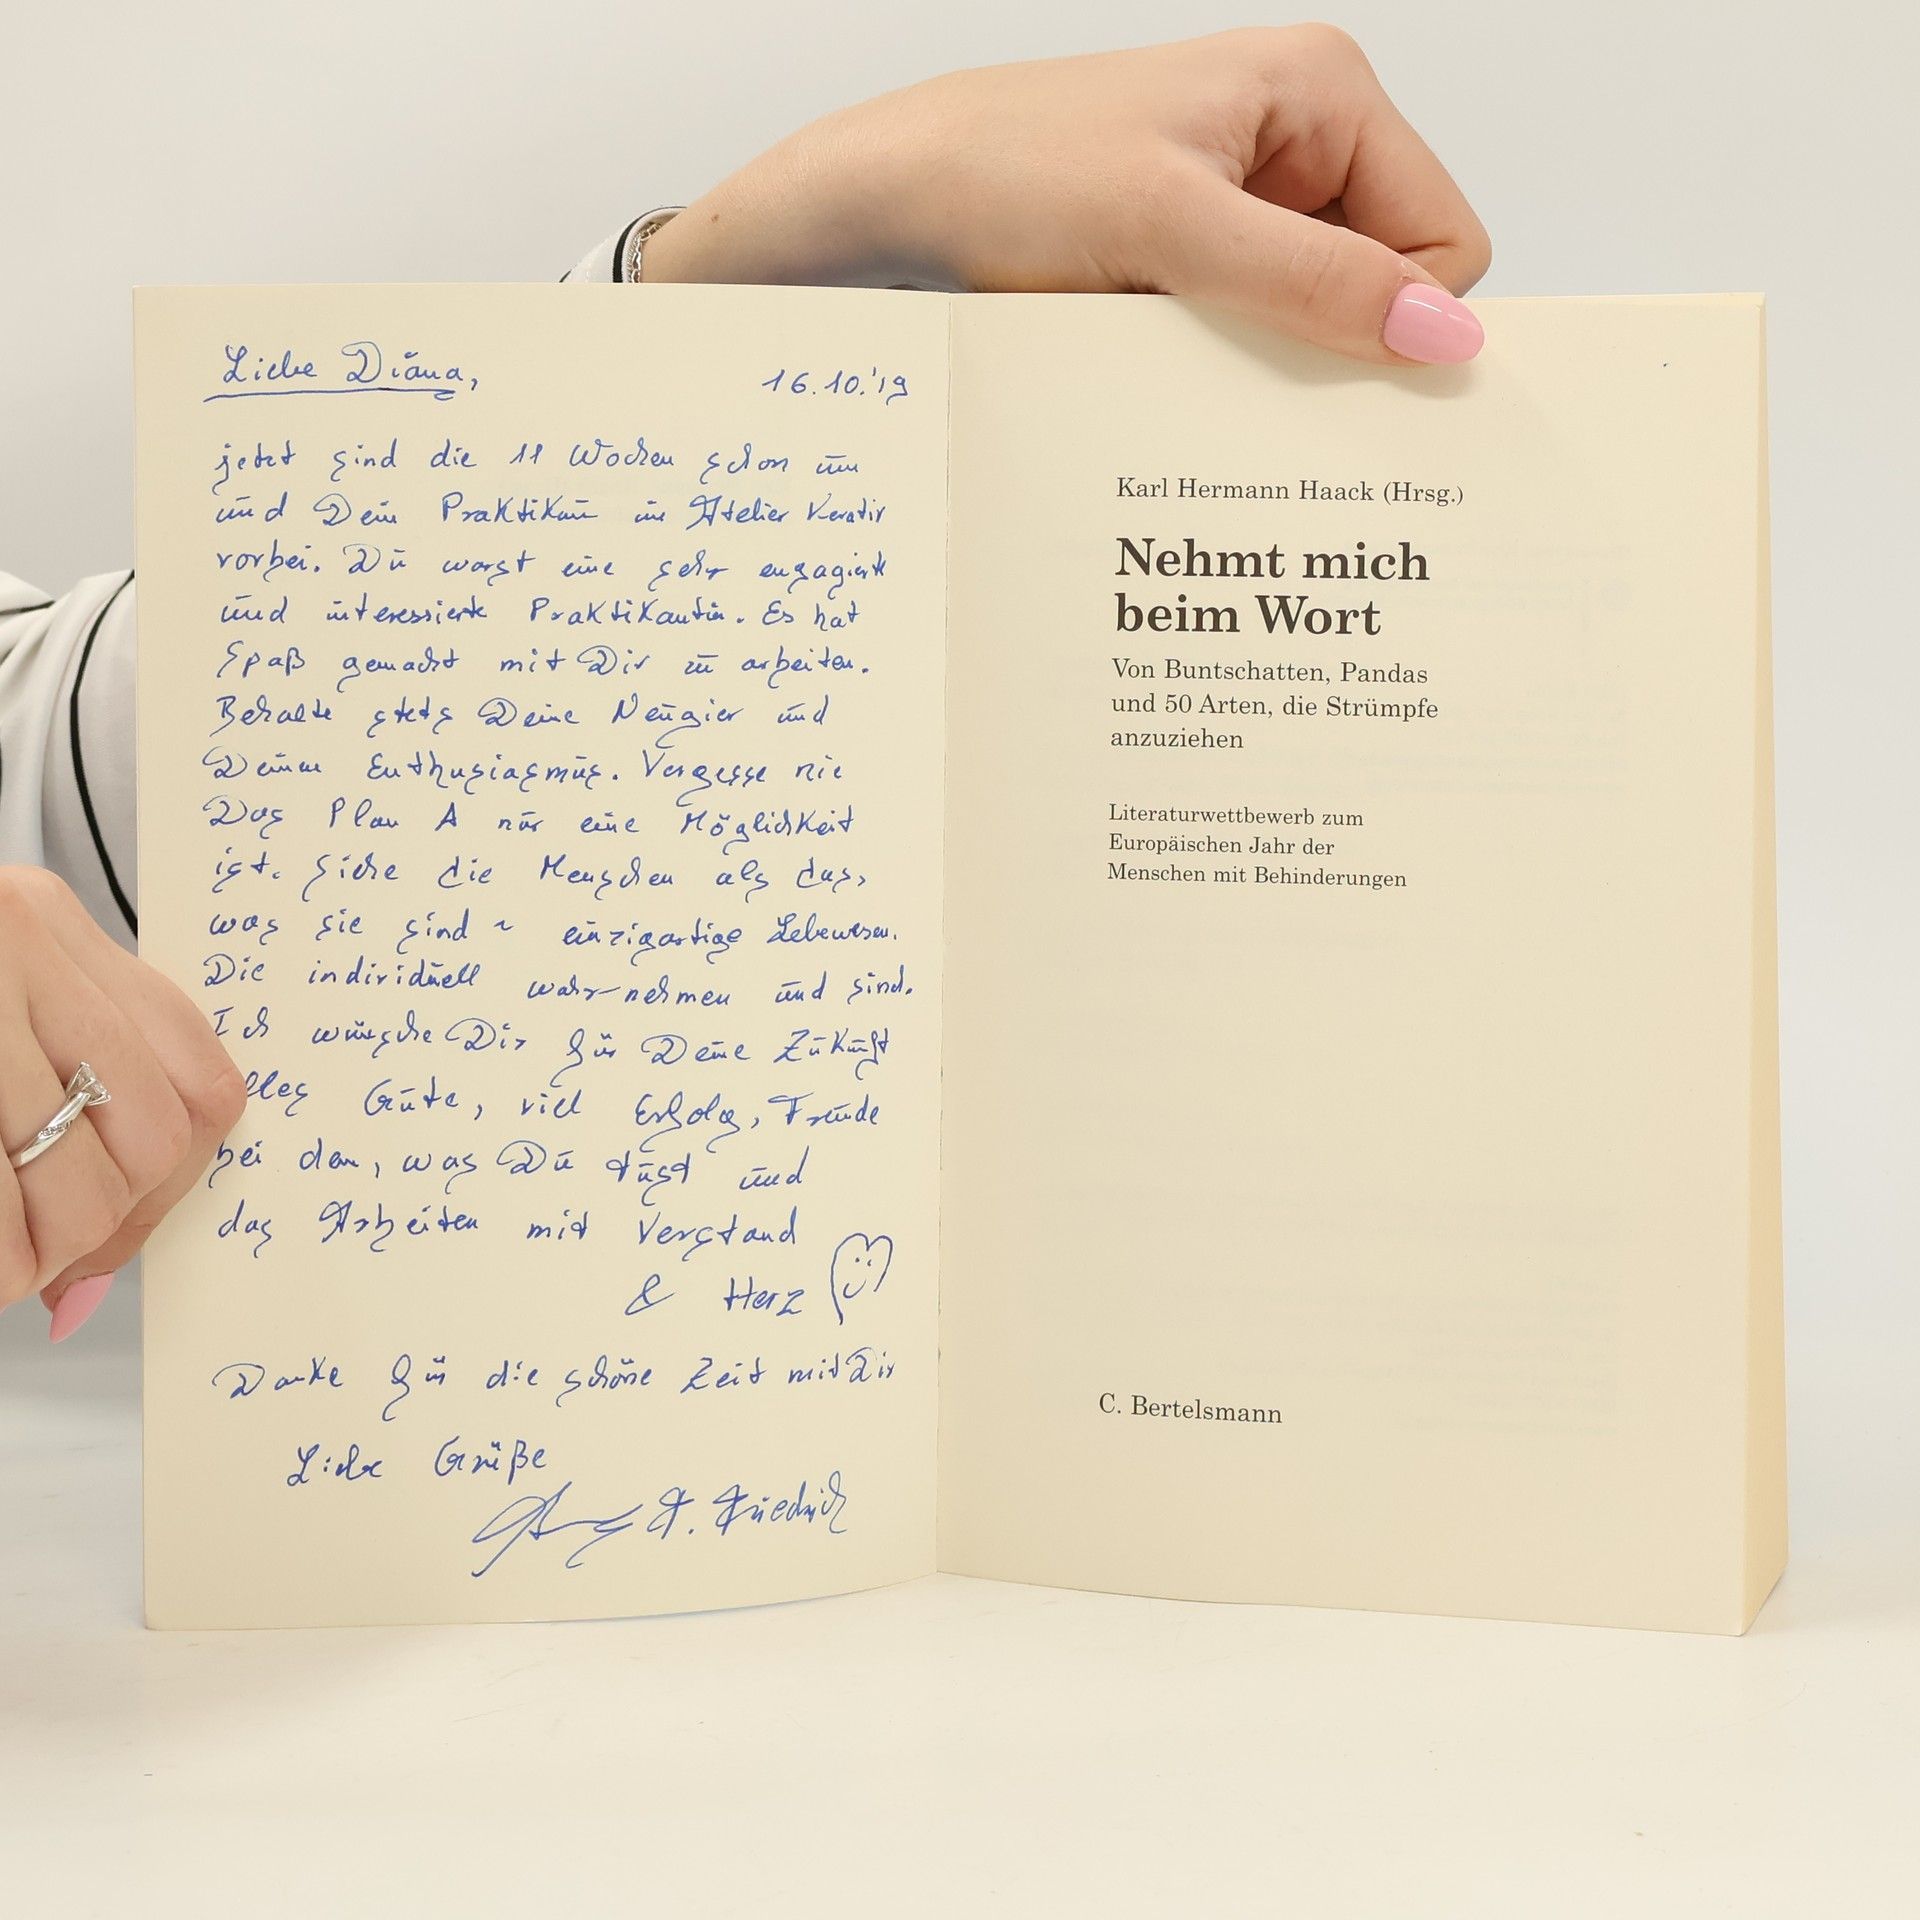 Liebe Diana,
16.10.'19
jetzt sind die 11 Wochen schon um
und Dein Praktikum im Atelier Kreativ
vorbei. Du warst eine sehr engagierte
und interessierte Praktikantin. Es hat
Spaß gemacht mit Dir zu arbeiten.
Behalte stets Deine Neugier und
Deinen Enthusiasmus. Vergesse nie
Das Plan A nur eine Möglichkeit
ist. Siehe die Menschen als das,
was sie sind ~ einzigartige Lebewesen.
Die individuell wahrnehmen und sind.
Ich wünsche Dir für Deine Zukunft
lles Gute, viel Erfolg, Freude
bei dem, was Du tust und
das Arbeiten mit Verstand
& Herz
Danke für die schöne Zeit mit Dir
Liebe Grüße
A. Friedrich
Karl Hermann Haack (Hrsg.)
Nehmt mich
beim Wort
Von Buntschatten, Pandas
und 50 Arten, die Strümpfe
anzuziehen
Literaturwettbewerb zum
Europäischen Jahr der
Menschen mit Behinderungen
C. Bertelsmann